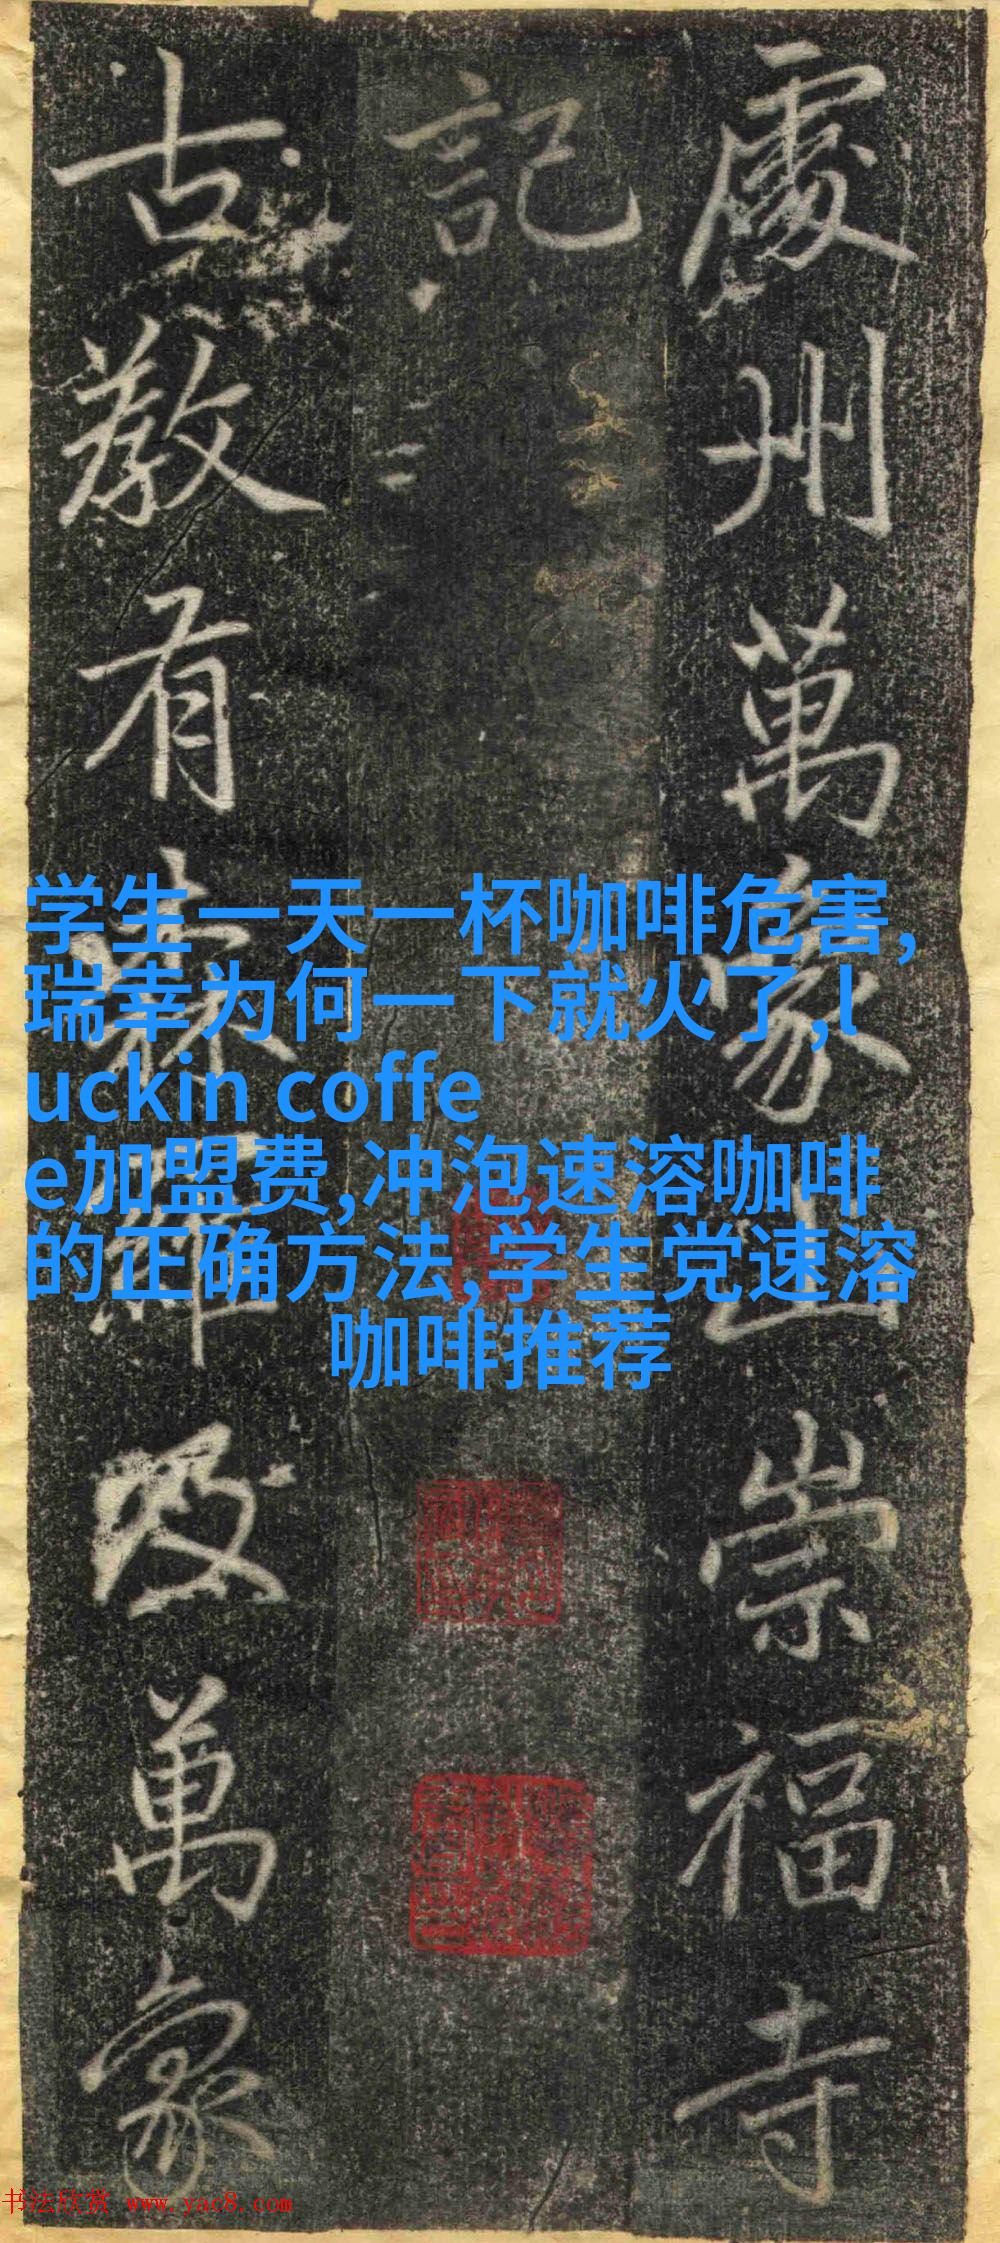 處州萬象山崇福寺
記
古教有森羅及萬象
学生一天一杯咖啡危害,
瑞幸为何一下就火了,l
uckin coffe
e加盟费,冲泡速溶咖啡
的正确方法,学生党速溶
咖啡推荐
书法欣赏 www.yac8.com